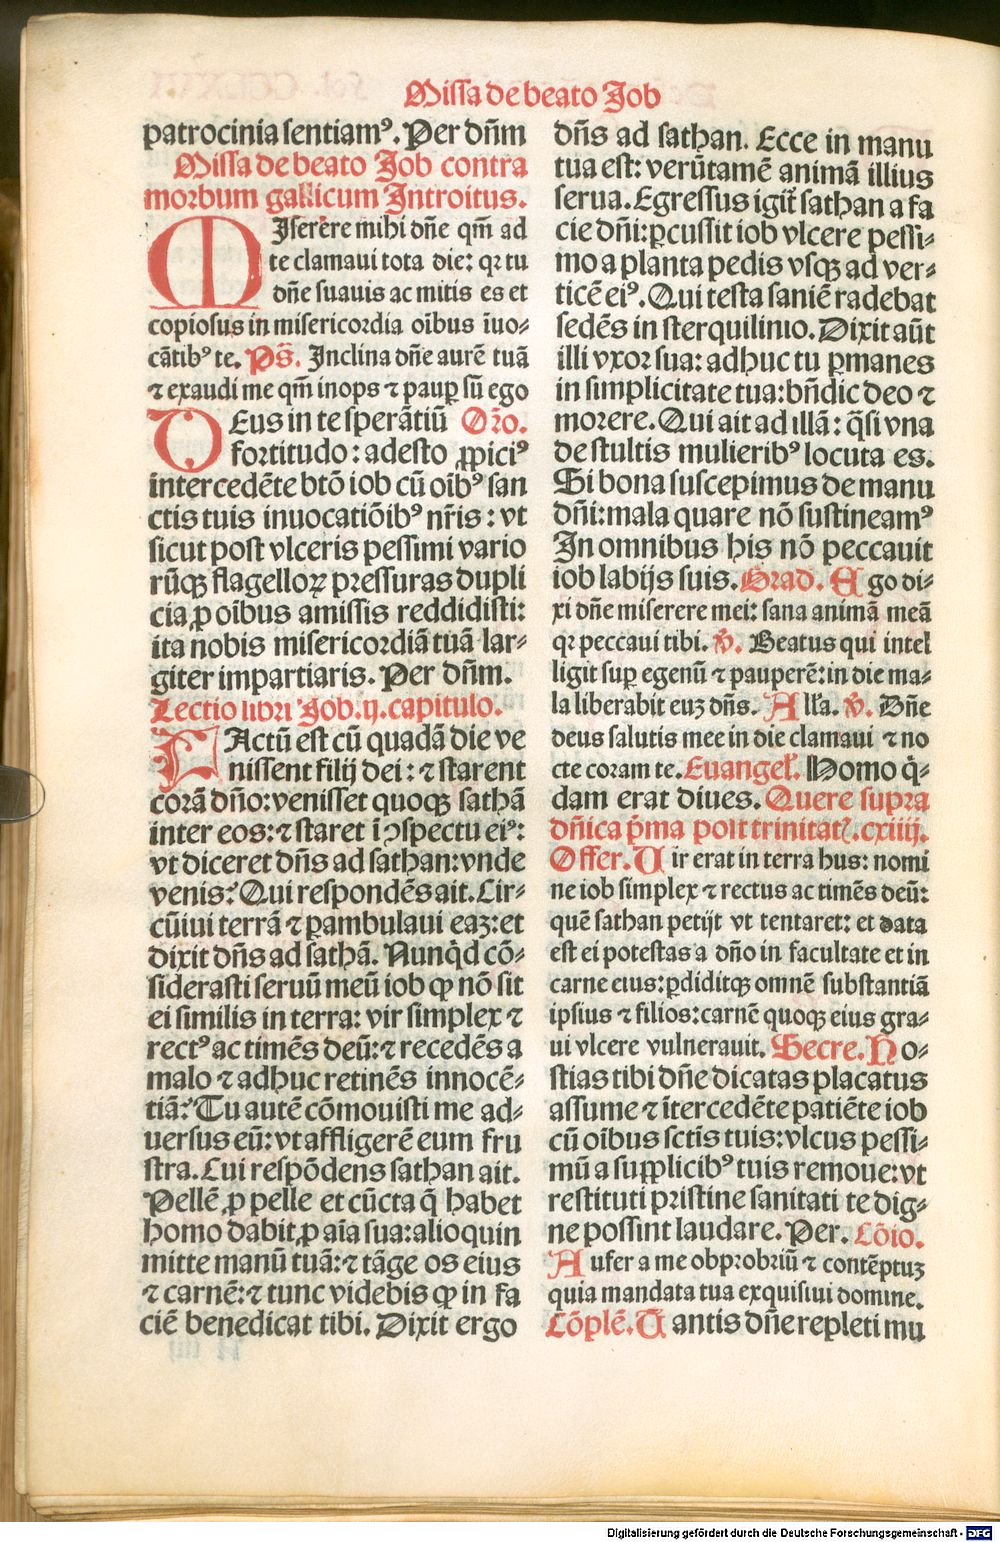 Missa de beato Job
patrocinia sentiamꝰ. Per dñm
Missa de beato Job contra
morbum gallicum Introitus.
MIserere mihi dñe qm̃ ad
te clamaui tota die: qꝛ tu
dñe suauis ac mitis es et
copiosus in misericordia oĩbus ĩuo⸗
cãtibꝰ te. Ps̃. Inclina dñe aurẽ tuã
⁊ exaudi me qm̃ inops ⁊ paup̲ sũ ego
DEus in te sperãtiũ Oꝛo.
fortitudo: adesto ꝓpiciꝰ
intercedẽte btõ iob cũ oĩbꝰ san
ctis tuis inuocatiõibꝰ nr̃is: vt
sicut post vlceris pessimi vario
rũqꝫ flagelloꝝ pressuras dupli
cia ꝓ oĩbus amissis reddidisti:
ita nobis misericordiã tuã lar⸗
giter impartiaris. Per dñm.
Lectio libri Job. ij. capitulo.
FActũ est cũ quadã die ve
nissent filij dei: ⁊ starent
corã dño: venisset quoqꝫ sathã
inter eos: ⁊ staret ĩ ꝯspectu eiꝰ:
vt diceret dñs ad sathan: vnde
venis? Qui respondẽs ait. Cir⸗
cũiui terrã ⁊ ꝑambulaui eaꝫ: et
dixit dñs ad sathã. Nunq̃d cõ⸗
siderasti seruũ meũ iob ꝙ nõ sit
ei similis in terra: vir simplex ⁊
rectꝰ ac timẽs deũ: ⁊ recedẽs a
malo ⁊ adhuc retinẽs innocẽ⸗
tiã? Tu autẽ cõmouisti me ad⸗
uersus eũ: vt affligerẽ eum fru
stra. Cui respõdens sathan ait.
Pellẽ ꝓ pelle et cũcta q̃ habet
homo dabit ꝓ aĩa sua: alioquin
mitte manũ tuã: ⁊ tãge os eius
⁊ carnẽ: ⁊ tunc videbis ꝙ in fa
ciẽ benedicat tibi. Dixit ergo
dñs ad sathan. Ecce in manu
tua est: verũtamẽ animã illius
serua. Egressus igit̃ sathan a fa
cie dñi: ꝑcussit iob vlcere pessi⸗
mo a planta pedis vsqꝫ ad ver⸗
ticẽ eiꝰ. Qui testa saniẽ radebat
sedẽs in sterquilinio. Dixit aũt
illi vxor sua: adhuc tu ꝑmanes
in simplicitate tua: bñdic deo ⁊
morere. Qui ait ad illã: q̃si vna
de stultis mulieribꝰ locuta es.
Si bona suscepimus de manu
dñi: mala quare nõ sustineamꝰ
In omnibus his nõ peccauit
iob labijs suis. Grad. Ego di⸗
xi dñe miserere mei: sana animã meã
qꝛ peccaui tibi. ℣. Beatus qui intel
ligit suꝑ egenũ ⁊ pauperẽ: in die ma⸗
la liberabit euꝫ dñs. All̃a. ℣. Dñe
deus salutis mee in die clamaui ⁊ no
cte coram te. Euangel̃. Homo q̇⸗
dam erat diues. Quere supra
dñica p̃ma post trinitat̃. cxiiij.
Offer. Uir erat in terra hus: nomi
ne iob simplex ⁊ rectus ac timẽs deũ:
quẽ sathan petijt vt tentaret: et data
est ei potestas a dño in facultate et in
carne eius: ꝑdiditqꝫ omnẽ substantiã
ipsius ⁊ filios: carnẽ quoqꝫ eius gra⸗
ui vlcere vulnerauit. Secre. Ho⸗
stias tibi dñe dicatas placatus
assume ⁊ ĩtercedẽte patiẽte iob
cũ oĩbus sctĩs tuis: vlcus pessi⸗
mũ a supplicibꝰ tuis remoue: vt
restituti pristine sanitati te dig⸗
ne possint laudare. Per. Cõio.
Aufer a me obprobriũ ⁊ contẽptuꝫ
quia mandata tua exquisiui domine.
Cõplẽ. Uantis dñe repleti mu
Digitalisierung gefördert durch die Deutsche Forschungsgemeinschaft - DFG